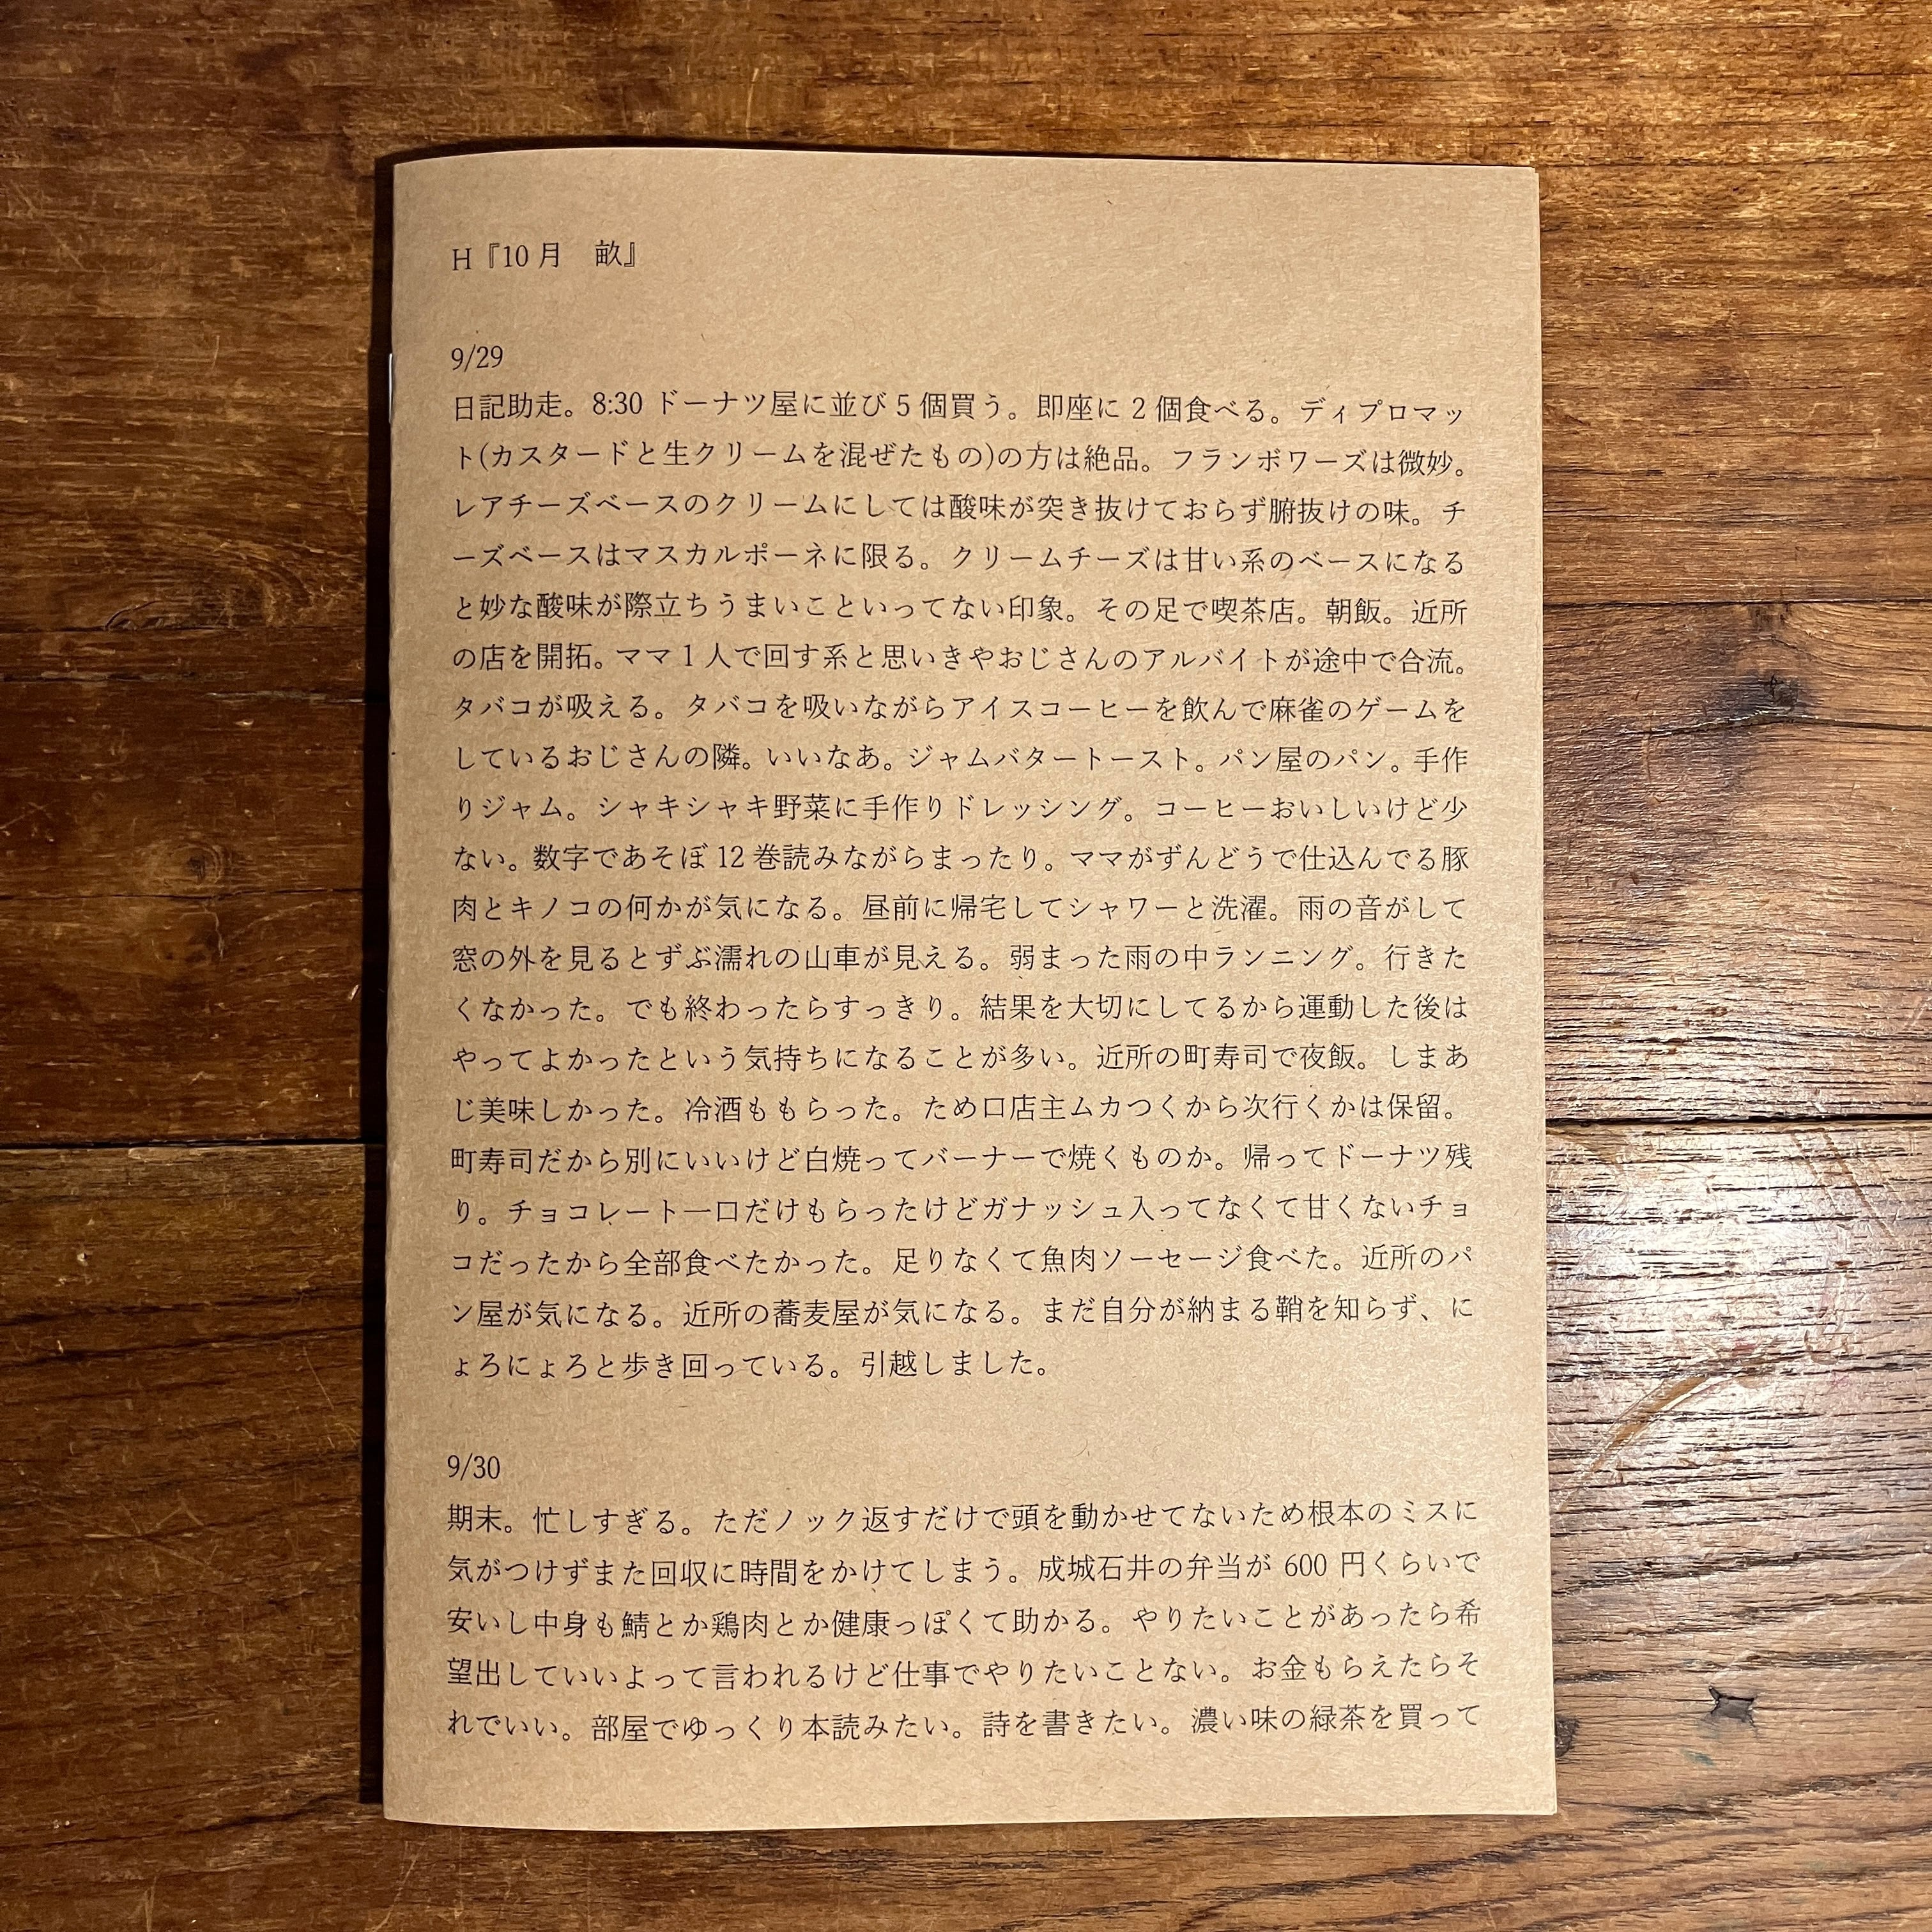 H『10月　畝』
9/29
日記助走。8:30 ドーナツ屋に並び 5 個買う。即座に 2 個食べる。ディプロマッ
ト(カスタードと生クリームを混ぜたもの)の方は絶品。フランボワーズは微妙。
レアチーズベースのクリームにしては酸味が突き抜けておらず腑抜けの味。チ
ーズベースはマスカルポーネに限る。クリームチーズは甘い系のベースになる
と妙な酸味が際立ちうまいこといってない印象。その足で喫茶店。朝飯。近所
の店を開拓。ママ 1 人で回す系と思いきやおじさんのアルバイトが途中で合流。
タバコが吸える。タバコを吸いながらアイスコーヒーを飲んで麻雀のゲームを
しているおじさんの隣。いいなあ。ジャムバタートースト。パン屋のパン。手作
りジャム。シャキシャキ野菜に手作りドレッシング。コーヒーおいしいけど少
ない。数字であそぼ 12 巻読みながらまったり。ママがずんどうで仕込んでる豚
肉とキノコの何かが気になる。昼前に帰宅してシャワーと洗濯。雨の音がして
窓の外を見るとずぶ濡れの山車が見える。弱まった雨の中ランニング。行きた
くなかった。でも終わったらすっきり。結果を大切にしてるから運動した後は
やってよかったという気持ちになることが多い。近所の町寿司で夜飯。しまあ
じ美味しかった。冷酒ももらった。ため口店主ムカつくから次行くかは保留。
町寿司だから別にいいけど白焼ってバーナーで焼くものか。帰ってドーナツ残
り。チョコレート一口だけもらったけどガナッシュ入ってなくて甘くないチョ
コだったから全部食べたかった。足りなくて魚肉ソーセージ食べた。近所のパ
ン屋が気になる。近所の蕎麦屋が気になる。まだ自分が納まる鞘を知らず、に
ょろにょろと歩き回っている。引越しました。
9/30
期末。忙しすぎる。ただノック返すだけで頭を動かせてないため根本のミスに
気がつけずまた回収に時間をかけてしまう。成城石井の弁当が 600 円くらいで
安いし中身も鯖とか鶏肉とか健康っぽくて助かる。やりたいことがあったら希
望出していいよって言われるけど仕事でやりたいことない。お金もらえたらそ
れでいい。部屋でゆっくり本読みたい。詩を書きたい。濃い味の緑茶を買って